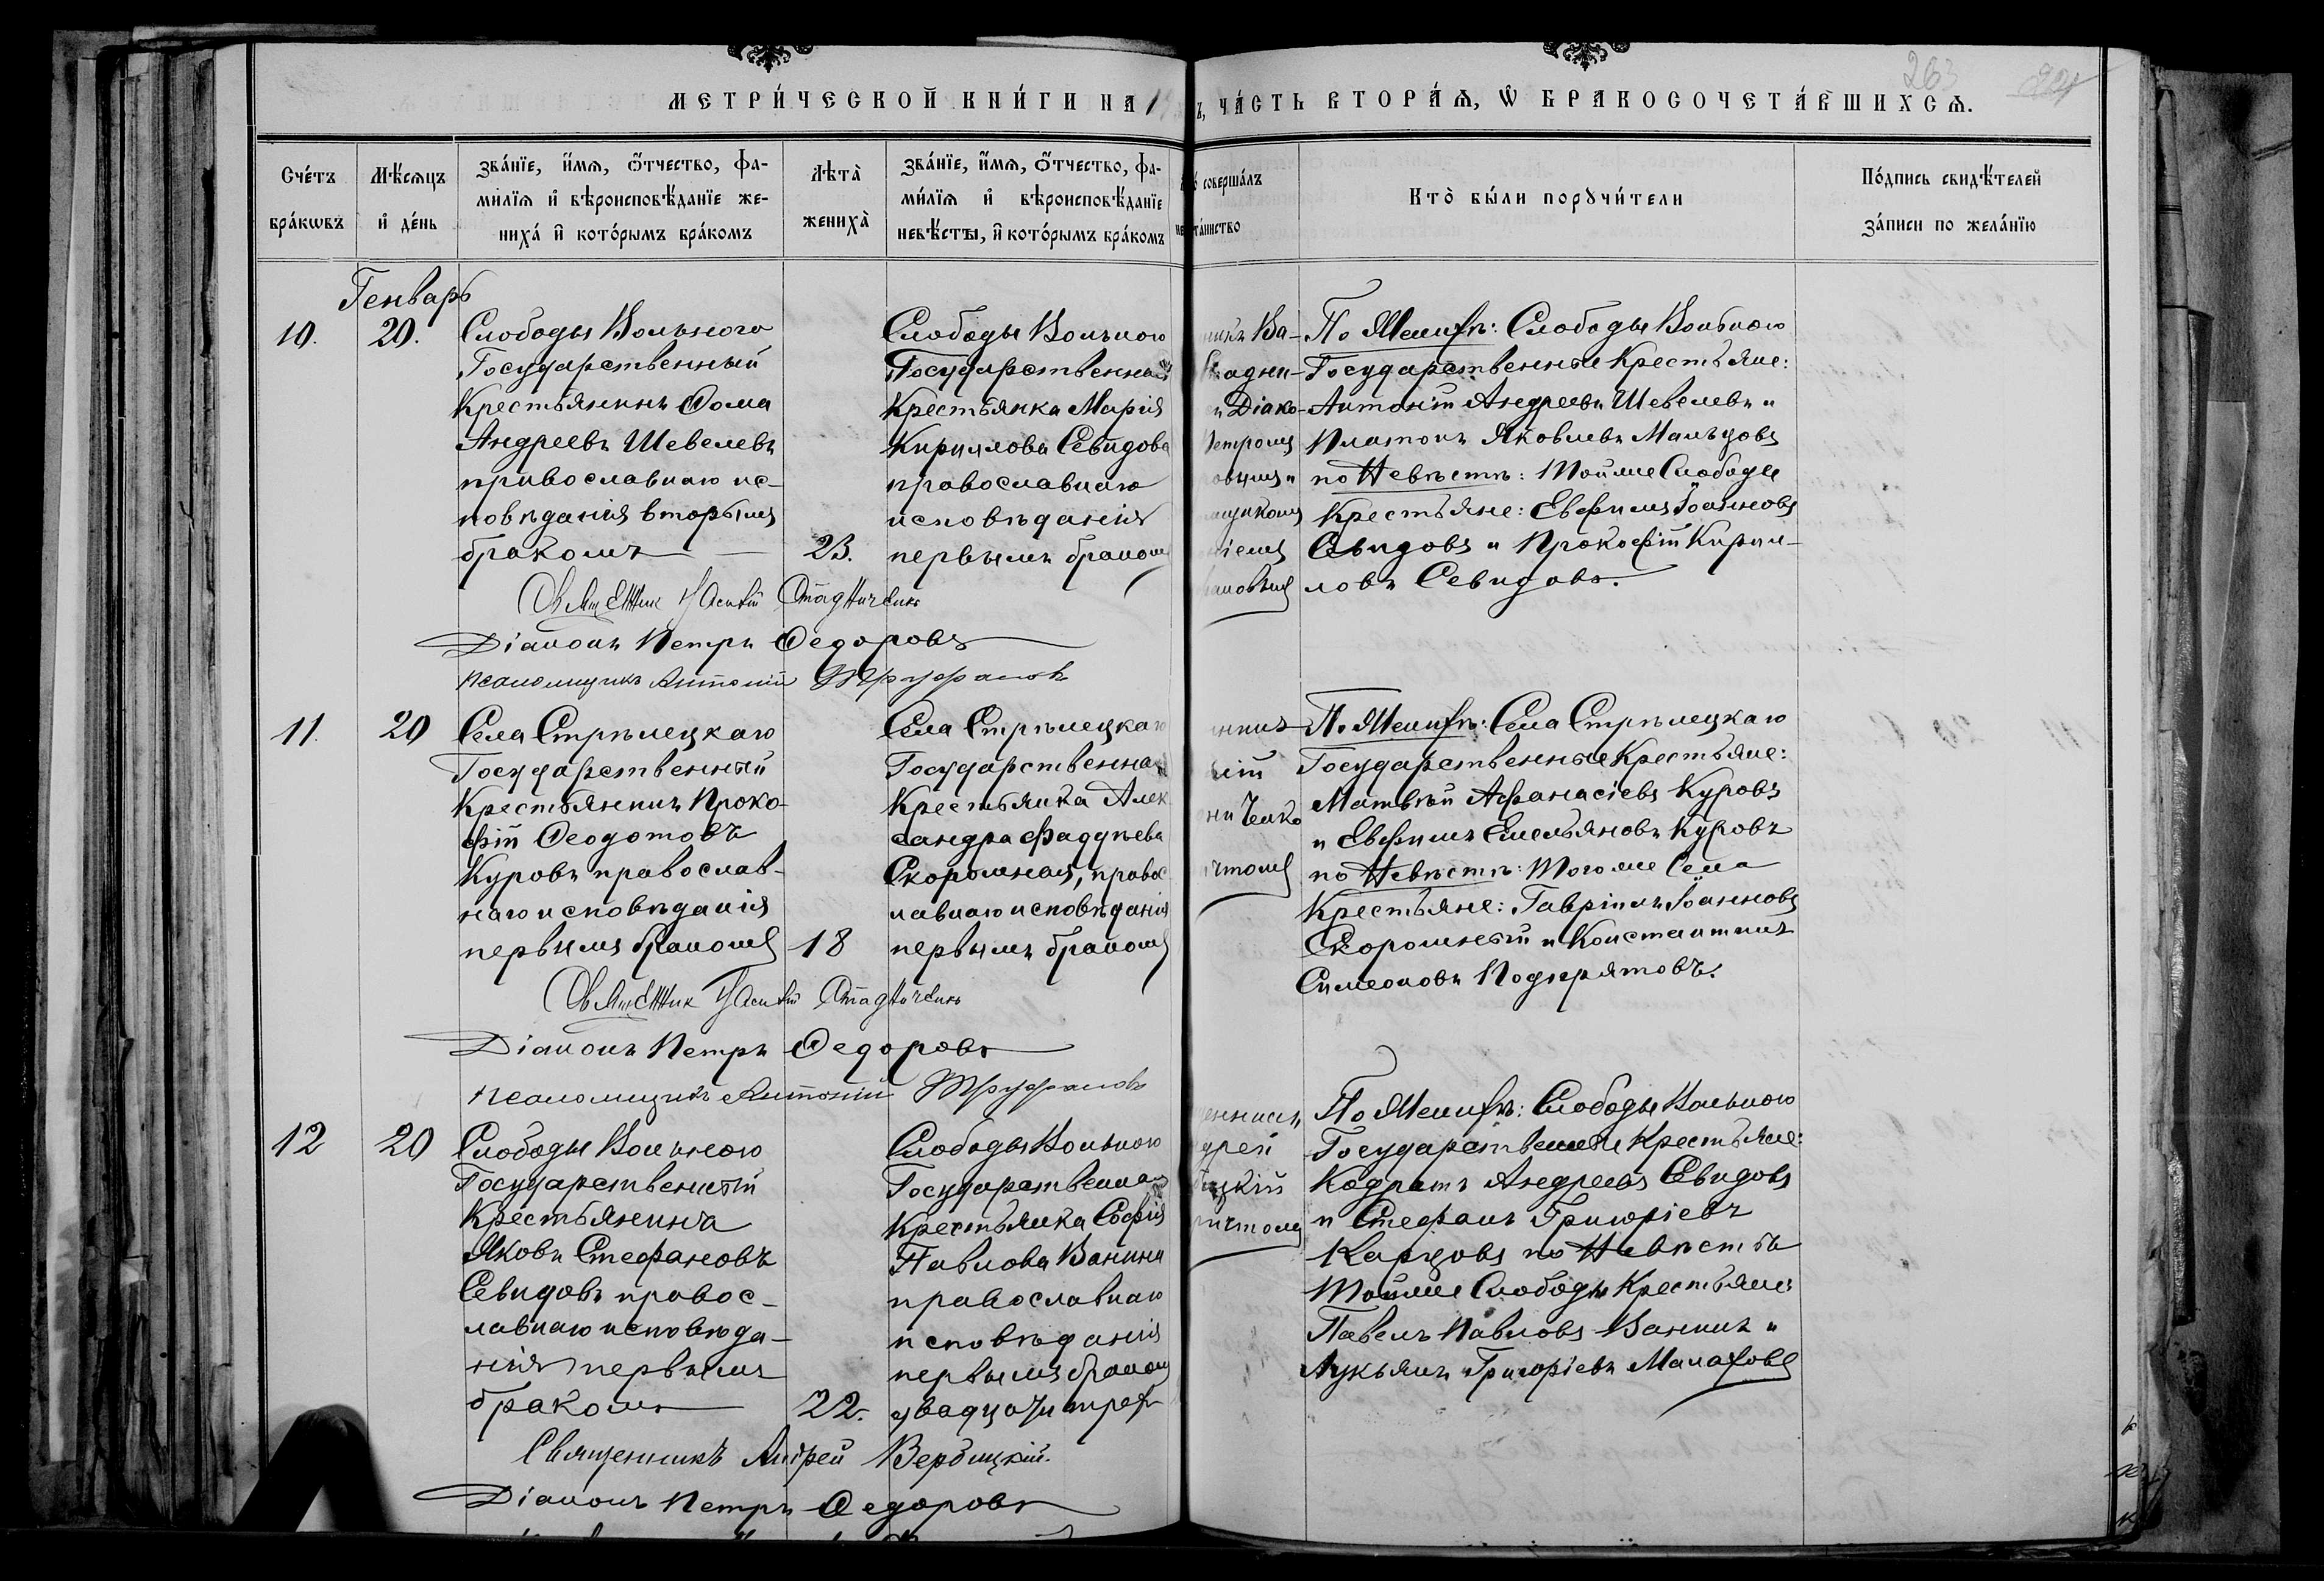 263
МЕТРИ́ЧЕСКОЙ КНИ́ГИ НА 1
Ъ, ЧА́СТЬ ВТОРА́Ѧ, Ѡ БРАКОСОЧЕТА́ВШИХСѦ.
Сче́тъ бра́кѡвъ
Мѣ́сѧцъ и҆ де́нь
Зва́нїе, и҆́мѧ, ѻ҆́тчество, фа-
ми́лїѧ и҆ вѣроисповѣ́данїе же-
ниха́ и҆ кото́рымъ бра́комъ
Лѣта̀ жениха̀
Зва́нїе, и҆́мѧ, ѻ҆́тчество, фа-
ми́лїѧ и҆ вѣроисповѣ́данїе
невѣ́сты, и҆ кото́рымъ бра́комъ
соверша́лъ
та́инство
Кто̀ бы́ли порꙋчи́тели
По́дпись свидѣ́телей
за́писи по жела́нїю
Генварь
10.
20.
Слободы Вольного
Государственный
Крестьянинъ Ѳома
Андреевъ Шевелевъ
православнаго ис-
повѣданія вторымъ
бракомъ
23.
Слободы Вольного
Государственная
Крестьянка Марія
Кириллова Севидова
православнаго
исповѣданія
первымъ бракомъ
никъ Ва-
Стадни-
и Діако-
Петромъ
По Женихѣ: Слободы Вольного
Государственные Крестьяне:
Антоній Андреевъ Шевелевъ и
Платонъ Яковлевъ Мальцовъ
по Невѣстѣ: Тойже Слободы
Крестьяне: Евфимъ Іоанновъ
Севидовъ и Прокофій Кирил-
ловъ Севидовъ.
Священник Василій Стадниченко
Діаконъ Петръ Ѳедоровъ
псаломщикъ Антоній Труфановъ
11.
20
Села Стрѣлецкаго
Государственный
Крестьянинъ Проко-
фій Ѳеодотовъ
Куровъ православ-
наго исповѣданія
первымъ бракомъ
18
Села Стрѣлецкаго
Государственная
Крестьянка Алек
сандра Фаддѣева
Скорошная, правос
лавнаго исповѣданія
первымъ бракомъ
По Женихѣ: Села Стрѣлецкаго
Государственные Крестьяне:
Матвѣй Афанасіевъ Куровъ
и Евфимъ Емельяновъ Куровъ
по Невѣстѣ: Тогоже Села
Крестьяне: Гавріилъ Іоанновъ
Скорошный и Константинъ
Симеоновъ Подпрятовъ.
Священник Василій Стадниченко
Діаконъ Петръ Ѳедоровъ
псаломщикъ Антоній Труфановъ
12
20
Слободы Вольного
Государственный
Крестьянинъ
Яковъ Стефановъ
Севидовъ правос-
лавнаго исповѣда-
нія первымъ
бракомъ
22.
Слободы Вольного
Государственная
Крестьянка Софія
Павлова Ванина
православнаго
исповѣданія
первымъ бракомъ
двадцати трех
По Женихѣ: Слободы Вольного
Государственные Крестьяне:
Кодратъ Андреевъ Севидовъ
и Стефанъ Григоріевъ
Карцовъ по Невѣстѣ
Тойже Слободы Крестьяне:
Павелъ Павловъ Ванинъ и
Лукьянъ Григоріевъ Малаховъ
Священникъ Андрей Вербицкій.
Діаконъ Петръ Ѳедоровъ